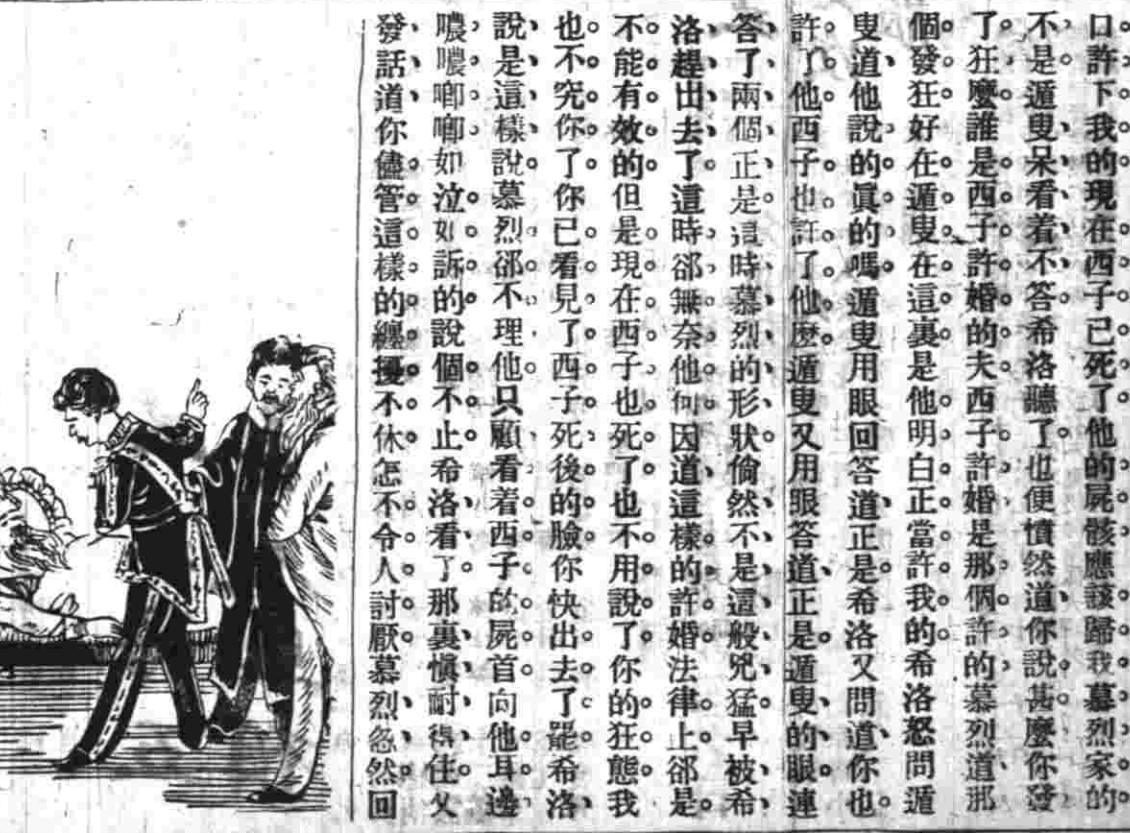 口許下我的現在西子已死了他的屍骸應該歸我慕烈家的
不是遁叟呆看着不答希洛聽了也便憤然道你說甚麼你發
了狂麼誰是西子許婚的夫西子許婚是那個許的慕烈道那
個發狂好在遁叟在這裏是他明白正當許我的希洛怒問遁
叟道他說的眞的嗎遁叟用眼回答道正是希洛又問道你也
許了他西子也許了他麼遁叟又用眼答道正是遁叟的眼連
答了兩個正是這時慕烈的形狀倘然不是這般兇猛早被希
洛趕出去了這時郤無奈他何因道這樣的許婚法律上郤是
不能有效的但是現在西子也死了也不用說了你的狂態我
也不究你了你已看見了西子死後的臉你快出去了罷希洛
說是這樣說慕烈郤不理他只顧看着西子的屍首向他耳邊
噥噥唧唧如泣如訴的說個不止希洛看了那裏愼耐得住又
發話道你儘管這樣的纏擾不休怎不令人討厭慕烈忽然回